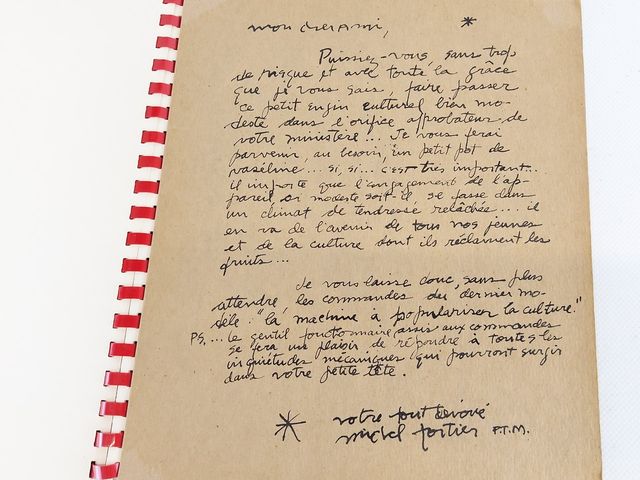 mon cher Ami, *
Puissiez-vous, sans trop
de risque et avec toute la grâce
que je vous sais, faire passer
ce petit engin culturel bien mo-
deste, dans l'orifice approbateur de
votre ministère... Je vous ferai
parvenir, au besoin, un petit pot de
vaseline... si, si... c'est très important...
il importe que l'engagement de l'ap-
pareil, si modeste soit-il, se fasse dans
un climat de tendresse relâchée.... il
en va de l'avenir de tous nos jeunes
et de la culture dont ils réclament les
fruits...
Je vous laisse donc, sans plus
attendre, les commandes du dernier mo-
dèle: "la machine à populariser la culture!"
PS.... le gentil fonctionnaire, assis aux commandes
se fera un plaisir de répondre à toutes les
inquiétudes mécaniques qui pourront surgir
dans votre petite tête.
* votre tout dévoué
michel fortier P.T.M.